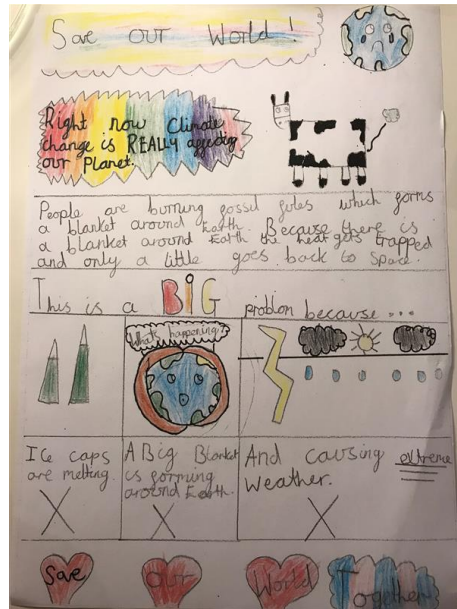 Save our World!
Right now Climate
change is REALLY affecting
our Planet.
People are burning fossil fules which forms
a blanket around Earth. Because there is
a blanket around Earth the heat gets trapped
and only a little goes back to Space.
This is a BiG problem because...
What's happening?
Ice caps
are melting.
X
A Big Blanket
is forming
around Earth.
X
And causing extreme
weather.
X
Save our World Together